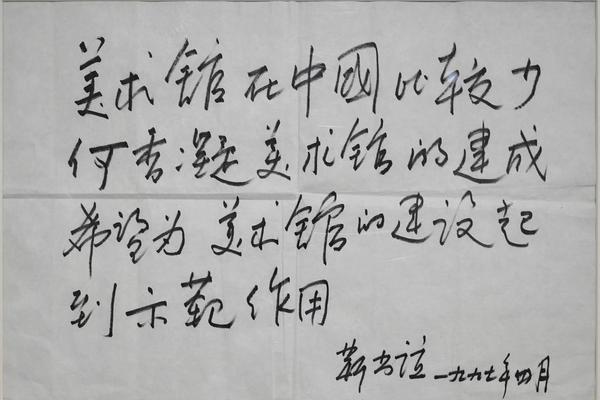 美术馆在中國比较少
何香凝美术馆的建成
希望为美术馆的建设起
到示范作用
靳尚谊 一九九七年四月